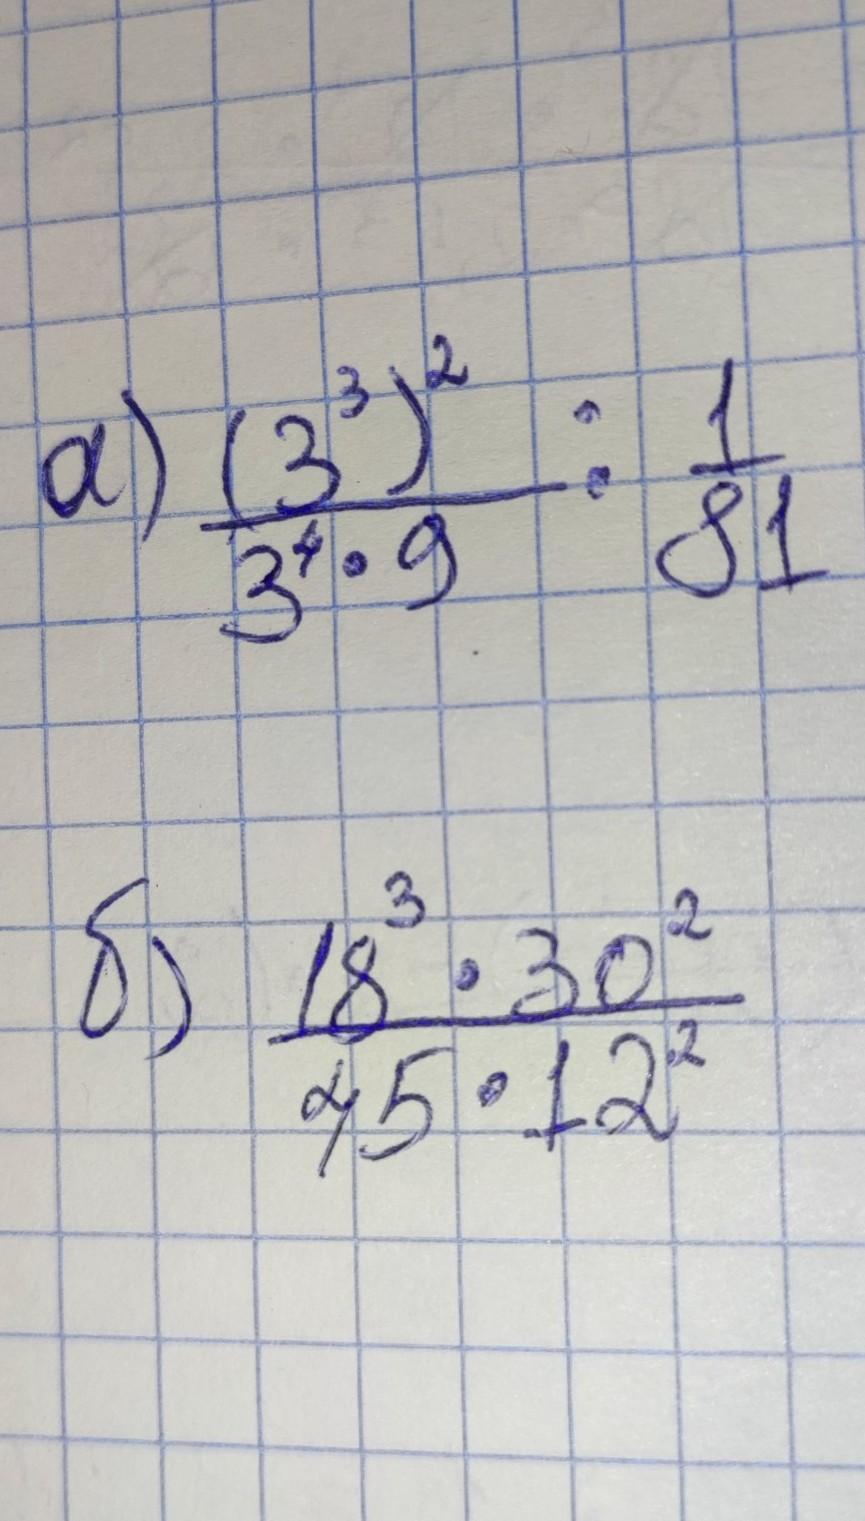 а) (3³)² : 1
3⁴ · 9 81
б) 18³ · 30²
45 · 12²